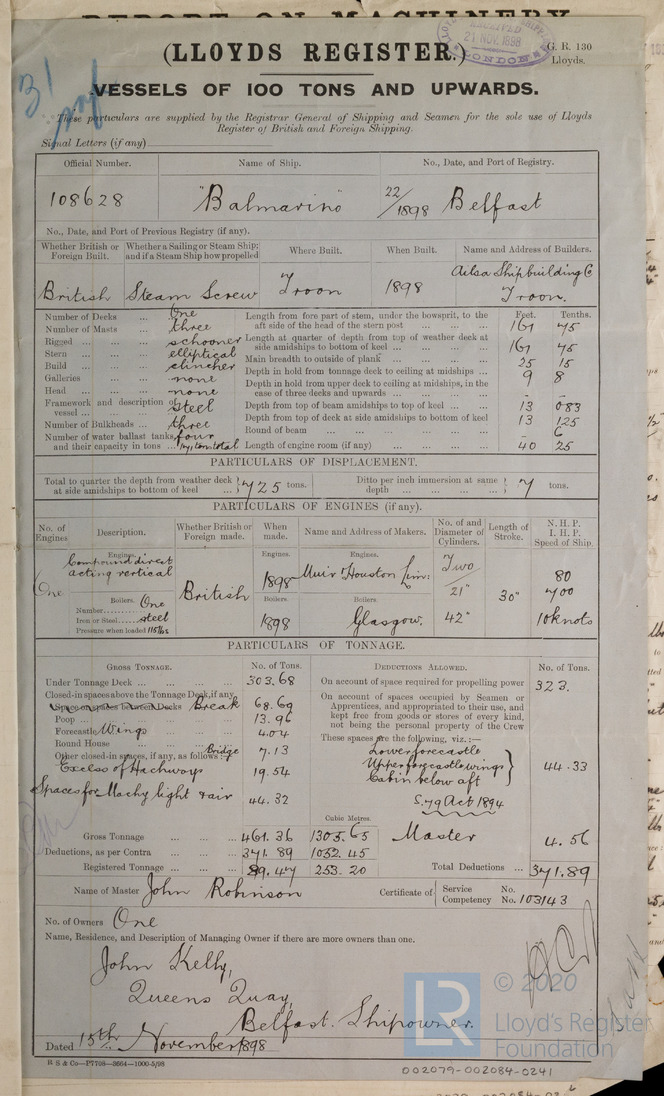 REPORT ON MACHINERY
(LLOYDS REGISTER.)
RECEIVED
21 NOV. 1898
LONDON
G. R. 130
Lloyds.
VESSELS OF 100 TONS AND UPWARDS.
These particulars are supplied by the Registrar General of Shipping and Seamen for the sole use of Lloyds
Register of British and Foreign Shipping.
Signal Letters (if any)
Official Number. Name of Ship. No., Date, and Port of Registry.
108628 "Balmarino" 22/1898 Belfast
No., Date, and Port of Previous Registry (if any).
Whether British or Foreign Built. Whether a Sailing or Steam Ship: and if a Steam Ship how propelled Where Built. When Built. Name and Address of Builders.
British Steam Screw Troon 1898 Ailsa Shipbuilding Co Troon.
Number of Decks ... One
Number of Masts ... three
Rigged ... schooner
Stern ... elliptical
Build ... clincher
Galleries ... none
Head ... none
Framework and description of vessel ... steel
Number of Bulkheads ... three
Number of water ballast tanks, four
and their capacity in tons ... total
Feet. Tenths.
Length from fore part of stem, under the bowsprit, to the aft side of the head of the stern post ... 167 75
Length at quarter of depth from top of weather deck at side amidships to bottom of keel ... 167 45
Main breadth to outside of plank ... 25 15
Depth in hold from tonnage deck to ceiling at midships ... 9 8
Depth in hold from upper deck to ceiling at midships, in the case of three decks and upwards ... - -
Depth from top of beam amidships to top of keel ... 13 083
Depth from top of deck at side amidships to bottom of keel 13 125
Round of beam ... - 6
Length of engine room (if any) ... 40 25
PARTICULARS OF DISPLACEMENT.
Total to quarter the depth from weather deck at side amidships to bottom of keel } 725 tons. Ditto per inch immersion at same depth ... } 7 tons.
PARTICULARS OF ENGINES (if any).
No. of Engines Description. Whether British or Foreign made. When made. Name and Address of Makers. No. of and Diameter of Cylinders. Length of Stroke. N. H. P. I. H. P. Speed of Ship.
One
Engines. Compound direct acting vertical
British
Engines. 1898
Engines. Muir & Houston Lim:
Two 21" 42"
30"
80
700
10 knots
Boilers. One
Number
Iron or Steel steel
Pressure when loaded 115 lbs
Boilers. 1898
Boilers. Glasgow.
PARTICULARS OF TONNAGE.
GROSS TONNAGE. No. of Tons.
Under Tonnage Deck ... 303.68
Closed-in spaces above the Tonnage Deck, if any
Space or spaces between Decks Break 68.69
Poop ... 13.96
Forecastle Wings 4.04
Round House
Other closed-in spaces, if any, as follows: Bridge 7.13
Excess of Hachways 19.54
Spaces for Machy light & air 44.32
DEDUCTIONS ALLOWED. No. of Tons.
On account of space required for propelling power 323.
On account of spaces occupied by Seamen or Apprentices, and appropriated to their use, and kept free from goods or stores of every kind, not being the personal property of the Crew
These spaces are the following, viz.:—
Lower forecastle
Upper forecastle wings
Cabin below aft } 44.33
S. 79 Act 1894
Cubic Metres.
Gross Tonnage ... 461.36 1305.65 Master 4.56
Deductions, as per Contra ... 371.89 1052.45
Registered Tonnage ... 89.47 253.20 Total Deductions ... 371.89
Name of Master John Robinson Certificate of Service No. Competency No. 103143
No. of Owners One
Name, Residence, and Description of Managing Owner if there are more owners than one.
John Kelly,
Queens Quay,
Belfast. Shipowner.
Dated 15th November 1898
R S & Co—P7708—3664—1000-5/98
LR © 2020
Lloyd's Register
Foundation
002079-002084-0241